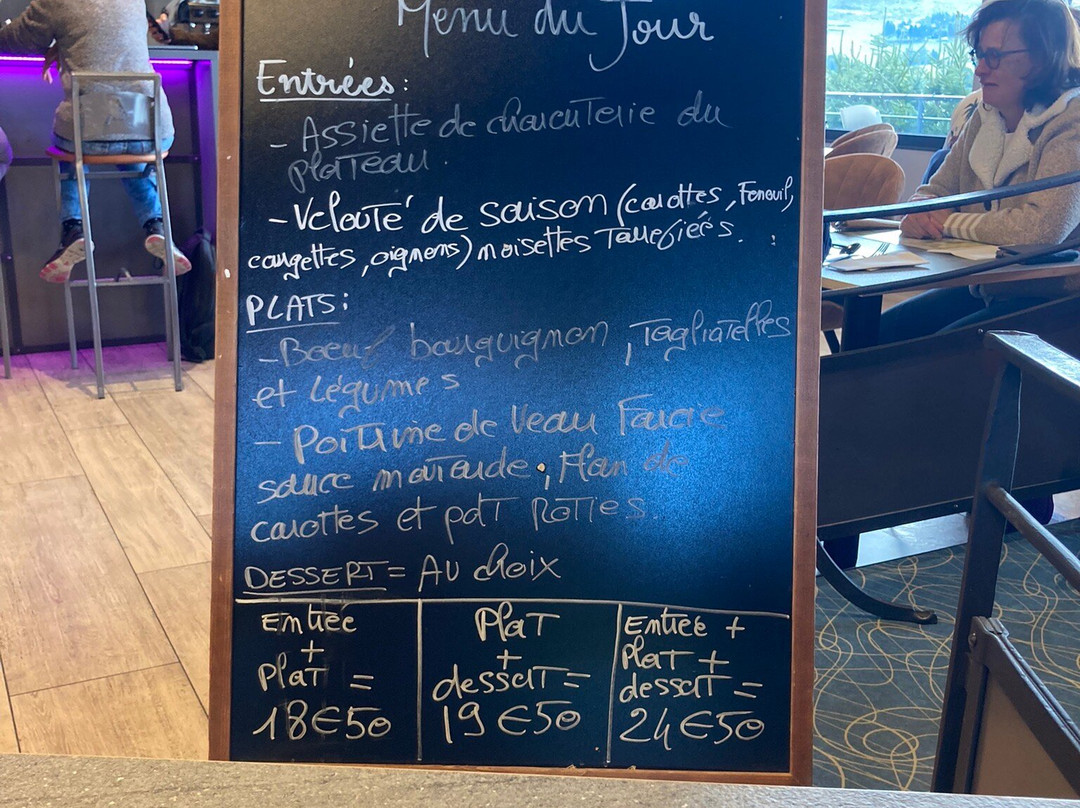 Menu du Jour
Entrées :
- Assiette de charcuterie du
plateau.
- Velouté de saison (carottes, Fenouil,
courgettes, oignons) noisettes Torréfiées.
PLATS :
- Boeuf bourguignon, Tagliatelles
et légumes
- Poitrine de Veau Farcie
sauce moutarde, Flan de
carottes et pdt Roties.
DESSERT = AU choix
Entrée
+
Plat =
18€50
Plat
+
dessert =
19€50
Entrée +
Plat +
dessert =
24€50